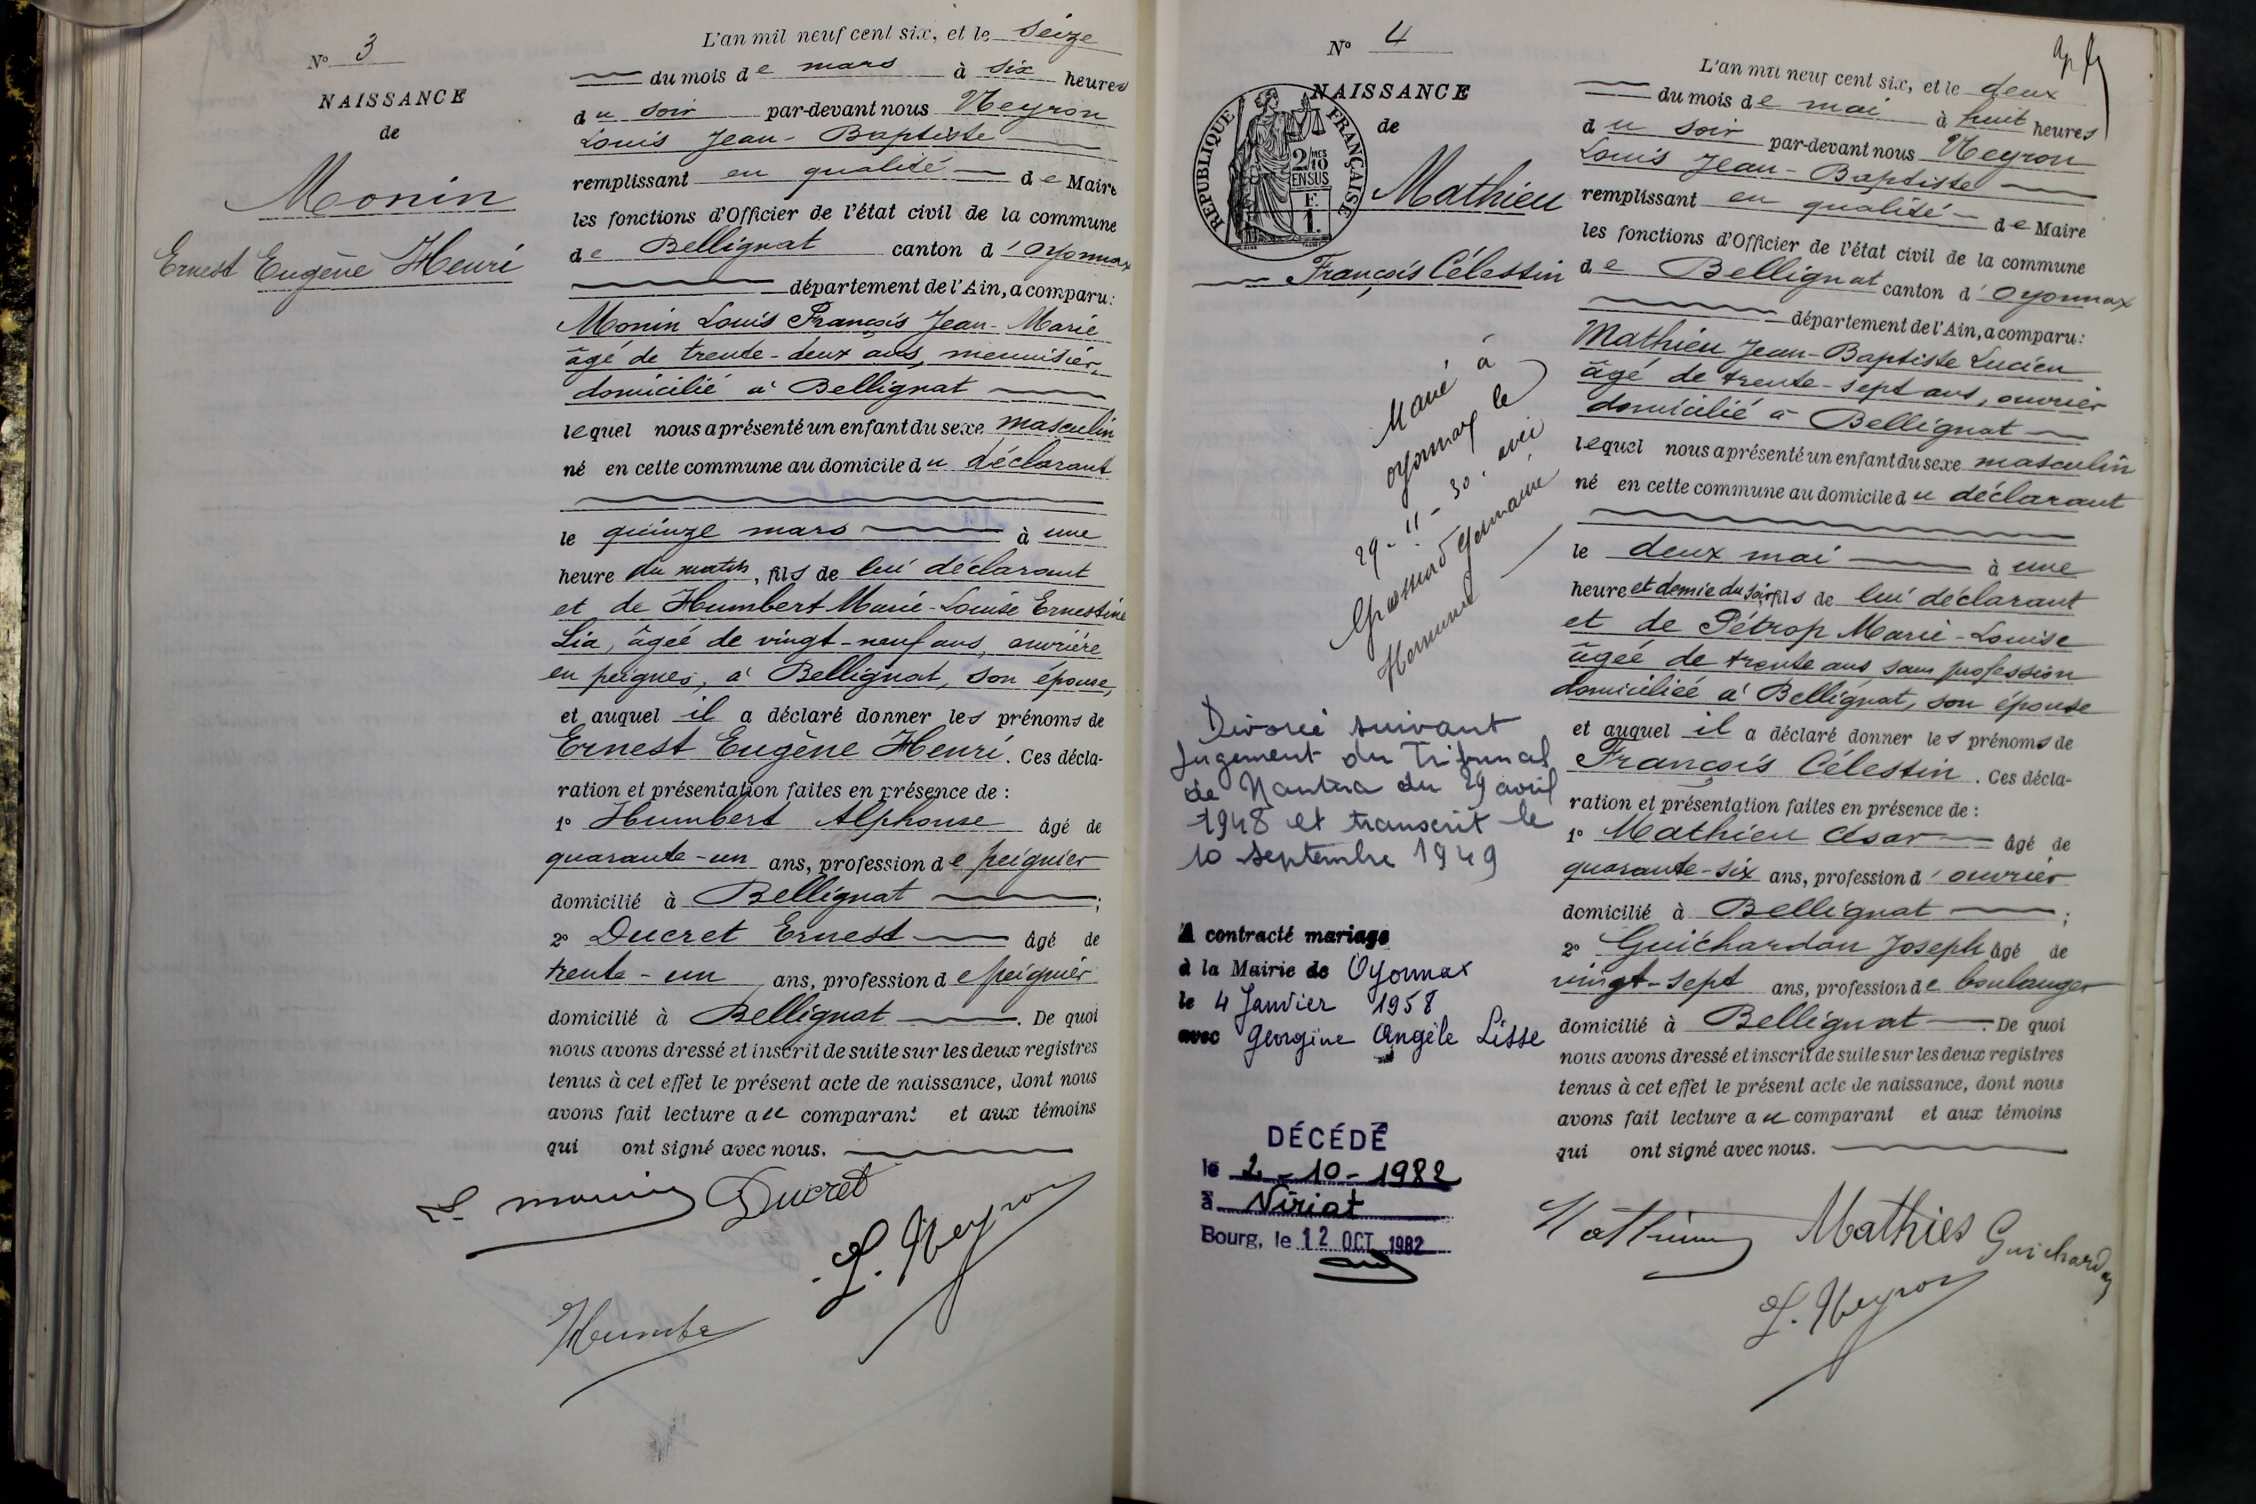 N° 3
NAISSANCE
de
Monin
Ernest Eugène Henri
L'an mil neuf cent six, et le seize
du mois de mars à six heures
du soir par-devant nous Neyron
Louis Jean-Baptiste
remplissant en qualité de Maire
les fonctions d'Officier de l'état civil de la commune
de Bellignat canton d'Oyonnax
département de l'Ain, a comparu:
Monin Louis François Jean-Marie
âgé de trente-deux ans, menuisier,
domicilié à Bellignat
lequel nous a présenté un enfant du sexe masculin
né en cette commune au domicile du déclarant
le quinze mars à une
heure du matin, fils de lui déclarant
et de Humbert Marie-Louise Ernestine
Lia, âgée de vingt-neuf ans, ouvrière
en peignes, à Bellignat, son épouse,
et auquel il a déclaré donner les prénoms de
Ernest Eugène Henri. Ces décla-
ration et présentation faites en présence de :
1° Humbert Alphonse âgé de
quarante-un ans, profession de peignier
domicilié à Bellignat ;
2° Ducret Ernest âgé de
trente-un ans, profession de peignier
domicilié à Bellignat. De quoi
nous avons dressé et inscrit de suite sur les deux registres
tenus à cet effet le présent acte de naissance, dont nous
avons fait lecture au comparant et aux témoins
qui ont signé avec nous.
L. Monin Ducret
L. Neyron
Humbe
N° 4
NAISSANCE
de
RÉPUBLIQUE FRANÇAISE
2/10 mes
EN SUS
F.
1.
Mathieu
François Célestin
Marié à
oyonnax le
29-11-30. avec
Grossiord Germaine
Divorcé suivant
jugement du Tribunal
de Nantua du 29 avril
1948 et transcrit le
10 septembre 1949
A contracté mariage
à la Mairie de Oyonnax
le 4 Janvier 1958
avec Georgine Angèle Lisse
DÉCÉDÉ
le 2-10-1982
à Viriat
Bourg, le 12 OCT 1982
L'an mil neuf cent six, et le deux
du mois de mai à huit heures
du soir par-devant nous Neyron
Louis Jean-Baptiste
remplissant en qualité de Maire
les fonctions d'Officier de l'état civil de la commune
de Bellignat canton d'Oyonnax
département de l'Ain, a comparu:
Mathieu Jean-Baptiste Lucien
âgé de trente-sept ans, ouvrier
domicilié à Bellignat
lequel nous a présenté un enfant du sexe masculin
né en cette commune au domicile du déclarant
le deux mai à une
heure et demie du soir, fils de lui déclarant
et de Pétrop Marie-Louise
âgée de trente ans, sans profession
domiciliée à Bellignat, son épouse
et auquel il a déclaré donner les prénoms de
François Célestin. Ces décla-
ration et présentation faites en présence de :
1° Mathieu César âgé de
quarante-six ans, profession d'ouvrier
domicilié à Bellignat ;
2° Guichardon Joseph âgé de
vingt-sept ans, profession de boulanger
domicilié à Bellignat. De quoi
nous avons dressé et inscrit de suite sur les deux registres
tenus à cet effet le présent acte de naissance, dont nous
avons fait lecture au comparant et aux témoins
qui ont signé avec nous.
Mathieu Mathies Guichardon
L. Neyron